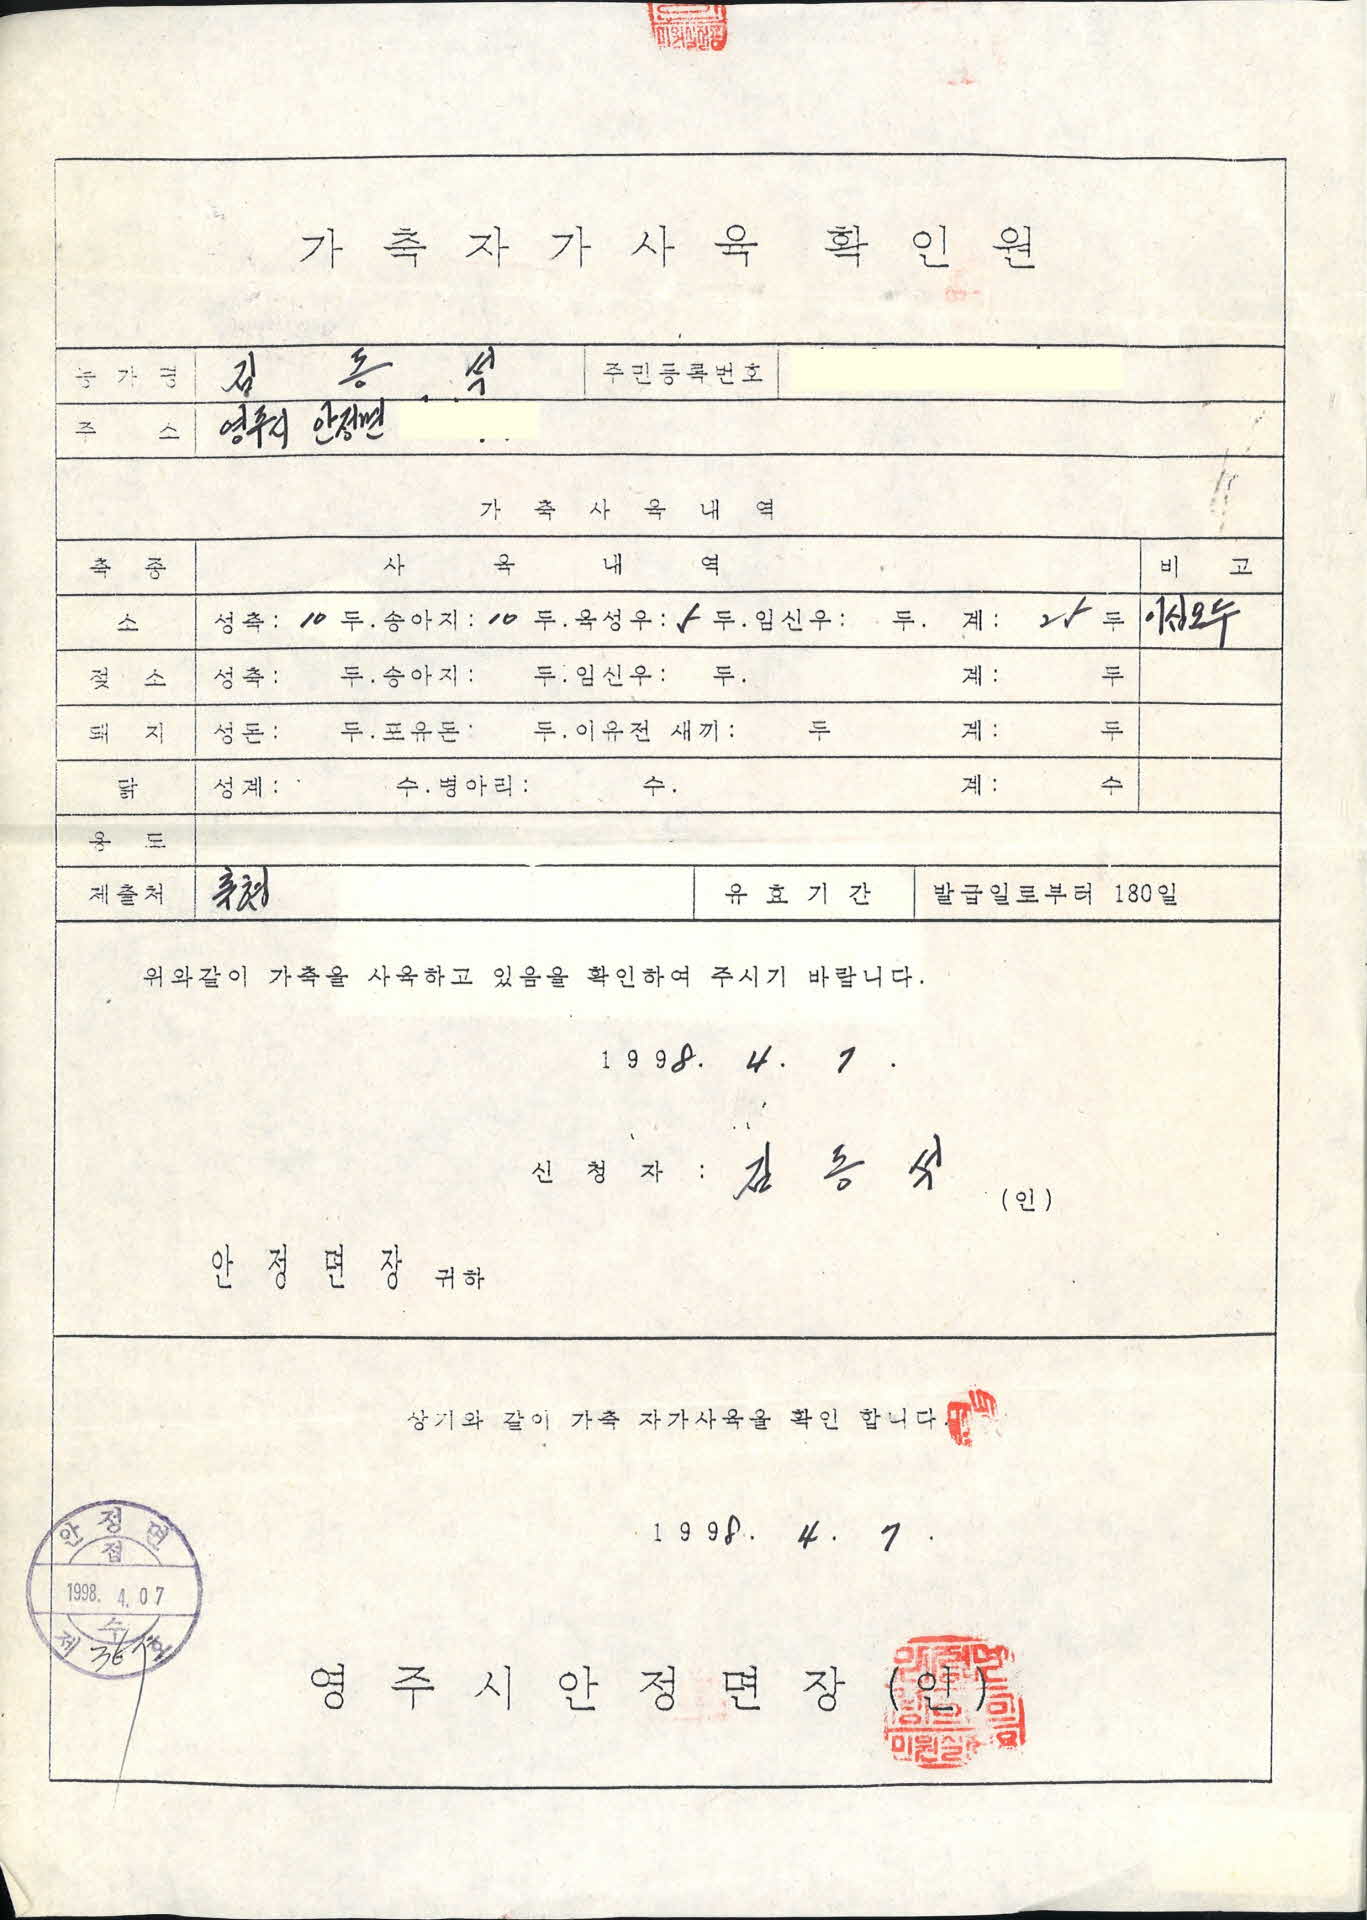 민원실전용
가축자가사육 확인원
농가명 김동석 주민등록번호
주소 영주시 안정면
가축사육내역
축종 사육내역 비고
소 성축: 10 두.송아지: 10 두.육성우: 5 두.임신우: 두. 계: 25 두 이십오두
젖소 성축: 두.송아지: 두.임신우: 두. 계: 두
돼지 성돈: 두.포유돈: 두.이유전 새끼: 두 계: 두
닭 성계: 수.병아리: 수. 계: 수
용도
제출처 유효기간 발급일로부터 180일
위와같이 가축을 사육하고 있음을 확인하여 주시기 바랍니다.
1998. 4. 7.
신청자: 김동석 (인)
안정면장 귀하
상기와 같이 가축 자가사육을 확인 합니다.
1998. 4. 7.
안정면
접
1998. 4. 07
수
제 365 호
영주시안정면장(인)
민원실